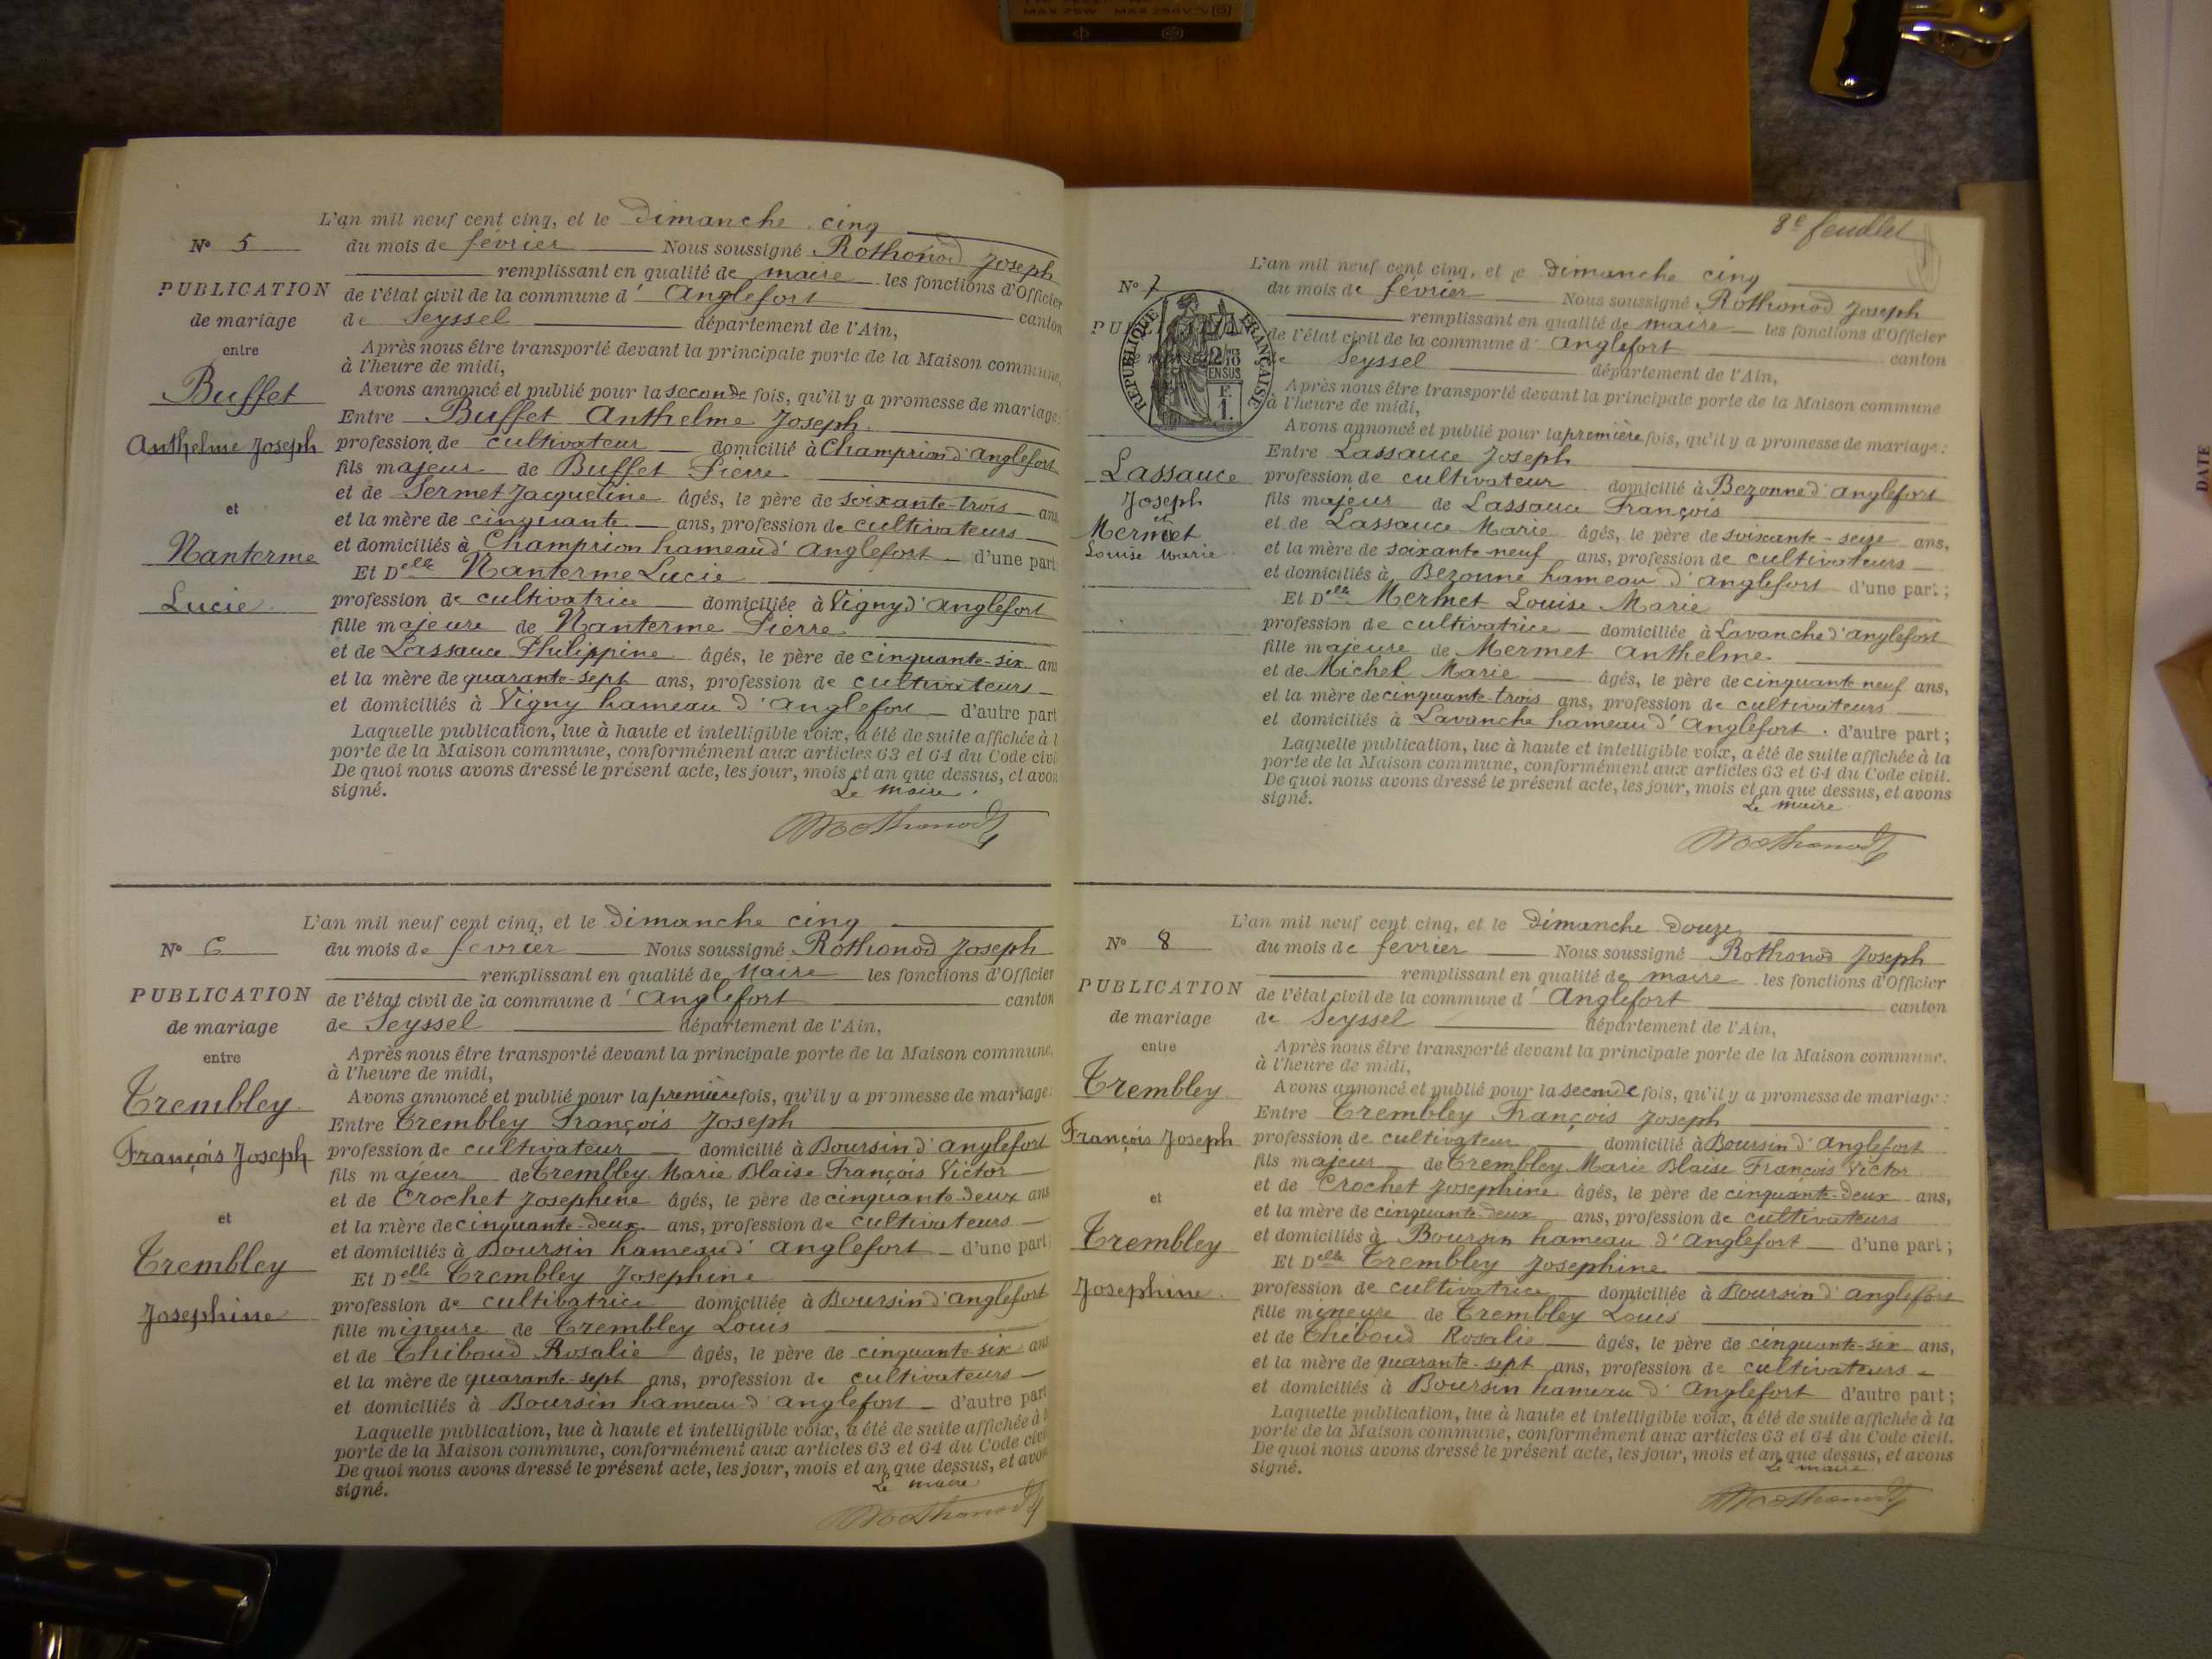 MAX 25W MAX 250V
L'an mil neuf cent cinq, et le Dimanche cinq
N° 5 du mois de février Nous soussigné Rothonod Joseph
remplissant en qualité de maire les fonctions d'Officier
PUBLICATION de l'état civil de la commune d' Anglefort canton
de mariage de Seyssel département de l'Ain,
entre Après nous être transporté devant la principale porte de la Maison commune,
à l'heure de midi,
Buffet Avons annoncé et publié pour la seconde fois, qu'il y a promesse de mariage:
Entre Buffet Anthelme Joseph
Anthelme Joseph profession de cultivateur domicilié à Champrion d'Anglefort
fils majeur de Buffet Pierre
et de Sermet Jacqueline âgés, le père de soixante-trois ans
et et la mère de cinquante ans, profession de cultivateurs
et domiciliés à Champrion hameau d' Anglefort d'une part
Nanterme Et Delle Nanterme Lucie
Lucie profession de cultivatrice domiciliée à Vigny d'Anglefort
fille majeure de Nanterme Pierre
et de Lassauce Philippine âgés, le père de cinquante-six ans
et la mère de quarante-sept ans, profession de cultivateurs
et domiciliés à Vigny hameau d'Anglefort d'autre part
Laquelle publication, lue à haute et intelligible voix, a été de suite affichée à l
porte de la Maison commune, conformément aux articles 63 et 64 du Code civi
De quoi nous avons dressé le présent acte, les jour, mois et an que dessus, et avon
signé. Le maire
Rothonod
L'an mil neuf cent cinq, et le Dimanche cinq
N° 6 du mois de fevrier Nous soussigné Rothonod Joseph
remplissant en qualité de Maire les fonctions d'Officier
PUBLICATION de l'état civil de la commune d' Anglefort canton
de mariage de Seyssel département de l'Ain,
entre Après nous être transporté devant la principale porte de la Maison commune,
à l'heure de midi,
Trembley Avons annoncé et publié pour la première fois, qu'il y a promesse de mariage:
Entre Trembley François Joseph
François Joseph profession de cultivateur domicilié à Boursin d'Anglefort
fils majeur de Trembley Marie Blaise François Victor
et de Crochet Josephine âgés, le père de cinquante-deux ans
et et la mère de cinquante-deux ans, profession de cultivateurs
Trembley et domiciliés à Boursin hameau d' Anglefort d'une part
Et Delle Trembley Josephine
Josephine profession de cultivatrice domiciliée à Boursin d'Anglefort
fille mineure de Trembley Louis
et de Thiboud Rosalie âgés, le père de cinquante-six ans
et la mère de quarante-sept ans, profession de cultivateurs
et domiciliés à Boursin hameau d'Anglefort d'autre part
Laquelle publication, lue à haute et intelligible voix, a été de suite affichée à l
porte de la Maison commune, conformément aux articles 63 et 64 du Code civi
De quoi nous avons dressé le présent acte, les jour, mois et an que dessus, et avon
signé. Le maire
Rothonod
8e feuillet
L'an mil neuf cent cinq, et le Dimanche cinq
N° 7 du mois de février Nous soussigné Rothonod Joseph
remplissant en qualité de maire les fonctions d'Officier
de l'état civil de la commune d' Anglefort canton
de Seyssel département de l'Ain,
RÉPUBLIQUE FRANÇAISE
2/10 EN SUS
F. 1.
Après nous être transporté devant la principale porte de la Maison commune
à l'heure de midi,
Avons annoncé et publié pour la première fois, qu'il y a promesse de mariage:
Entre Lassauce Joseph
Lassauce profession de cultivateur domicilié à Bezonne d'Anglefort
Joseph fils majeur de Lassauce François
et et de Lassauce Marie âgés, le père de soixante-seize ans,
Mermet et la mère de soixante-neuf ans, profession de cultivateurs
Louise Marie et domiciliés à Bezonne hameau d'Anglefort d'une part;
Et Delle Mermet Louise Marie
profession de cultivatrice domiciliée à Lavanche d'Anglefort
fille majeure de Mermet Anthelme
et de Michel Marie âgés, le père de cinquante neuf ans,
et la mère de cinquante-trois ans, profession de cultivateurs
et domiciliés à Lavanche hameau d'Anglefort d'autre part;
Laquelle publication, lue à haute et intelligible voix, a été de suite affichée à la
porte de la Maison commune, conformément aux articles 63 et 64 du Code civil.
De quoi nous avons dressé le présent acte, les jour, mois et an que dessus, et avons
signé. Le maire
Rothonod
L'an mil neuf cent cinq, et le Dimanche douze
N° 8 du mois de fevrier Nous soussigné Rothonod Joseph
remplissant en qualité de maire les fonctions d'Officier
PUBLICATION de l'état civil de la commune d' Anglefort canton
de mariage de Seyssel département de l'Ain,
entre Après nous être transporté devant la principale porte de la Maison commune,
à l'heure de midi,
Trembley Avons annoncé et publié pour la seconde fois, qu'il y a promesse de mariage:
Entre Trembley François Joseph
François Joseph profession de cultivateur domicilié à Boursin d'Anglefort
fils majeur de Trembley Marie Blaise François Victor
et et de Crochet Josephine âgés, le père de cinquante-deux ans,
et la mère de cinquante-deux ans, profession de cultivateurs
Trembley et domiciliés à Boursin hameau d'Anglefort d'une part;
Et Delle Trembley Josephine
Josephine profession de cultivatrice domiciliée à Boursin d'Anglefort
fille mineure de Trembley Louis
et de Thiboud Rosalie âgés, le père de cinquante-six ans,
et la mère de quarante-sept ans, profession de cultivateurs
et domiciliés à Boursin hameau d' Anglefort d'autre part;
Laquelle publication, lue à haute et intelligible voix, a été de suite affichée à la
porte de la Maison commune, conformément aux articles 63 et 64 du Code civil.
De quoi nous avons dressé le présent acte, les jour, mois et an que dessus, et avons
signé. Le maire
Rothonod
DATE